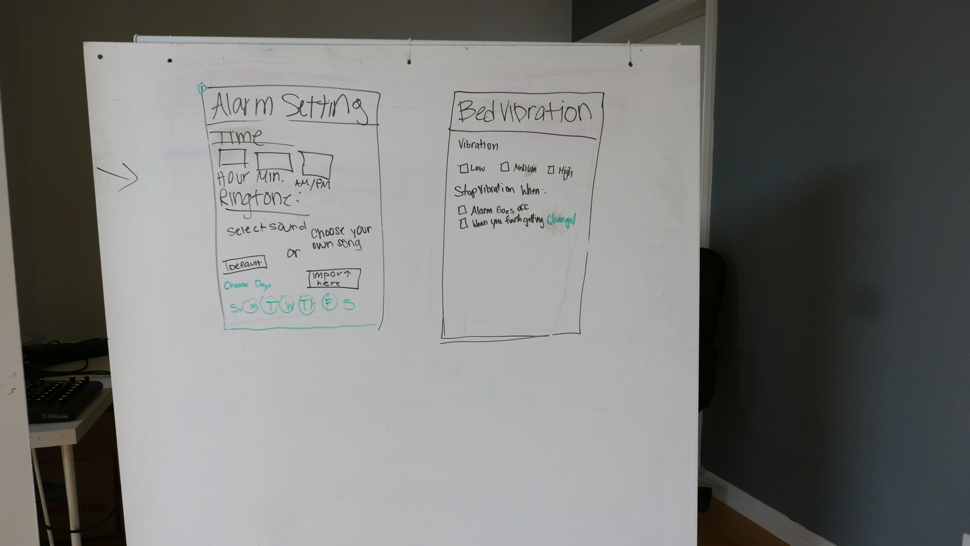 Alarm Setting
Time
Hour Min. AM/PM
Ringtone:
Select sound or Choose your
own song
Default
Import
here
Choose Days
Su M T W Th F S
Bed Vibration
Vibration
Low Medium High
Stop Vibration When:
Alarm Goes off
When you finish getting Changed